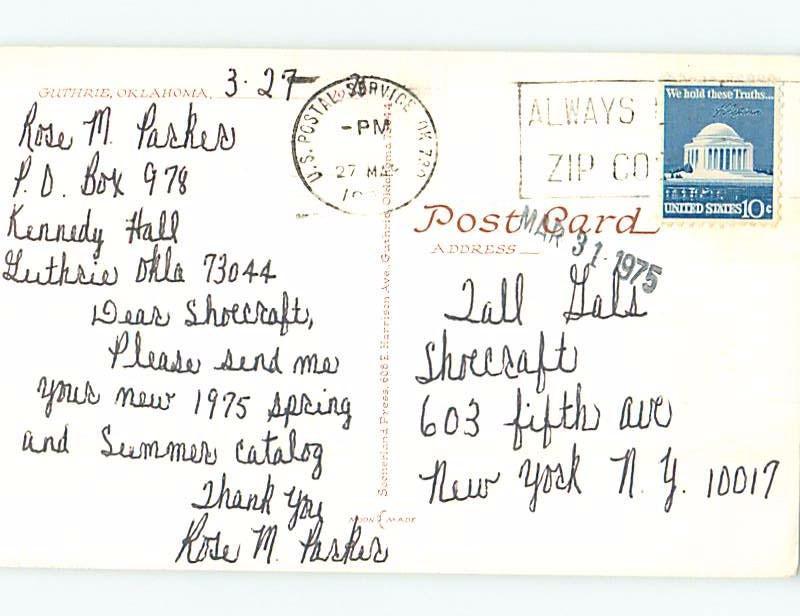 GUTHRIE, OKLAHOMA.
3-27-
Rose M. Parker
P.O. Box 978
Kennedy Hall
Guthrie Okla 73044
Dear Shoecraft,
Please send me
your new 1975 spring
and Summer catalog
Thank You
Rose M. Parker
U.S. POSTAL SERVICE OK 730
-PM
27 MAR
Scenerland Press, 608 E. Harrison Ave., Guthrie, Oklahoma
MADE
ALWAYS
ZIP CO
We hold these Truths...
UNITED STATES 10c
Post Card
ADDRESS
MAR 31 1975
Tall Gals
Shoecraft
603 fifth ave
New York N.Y. 10017